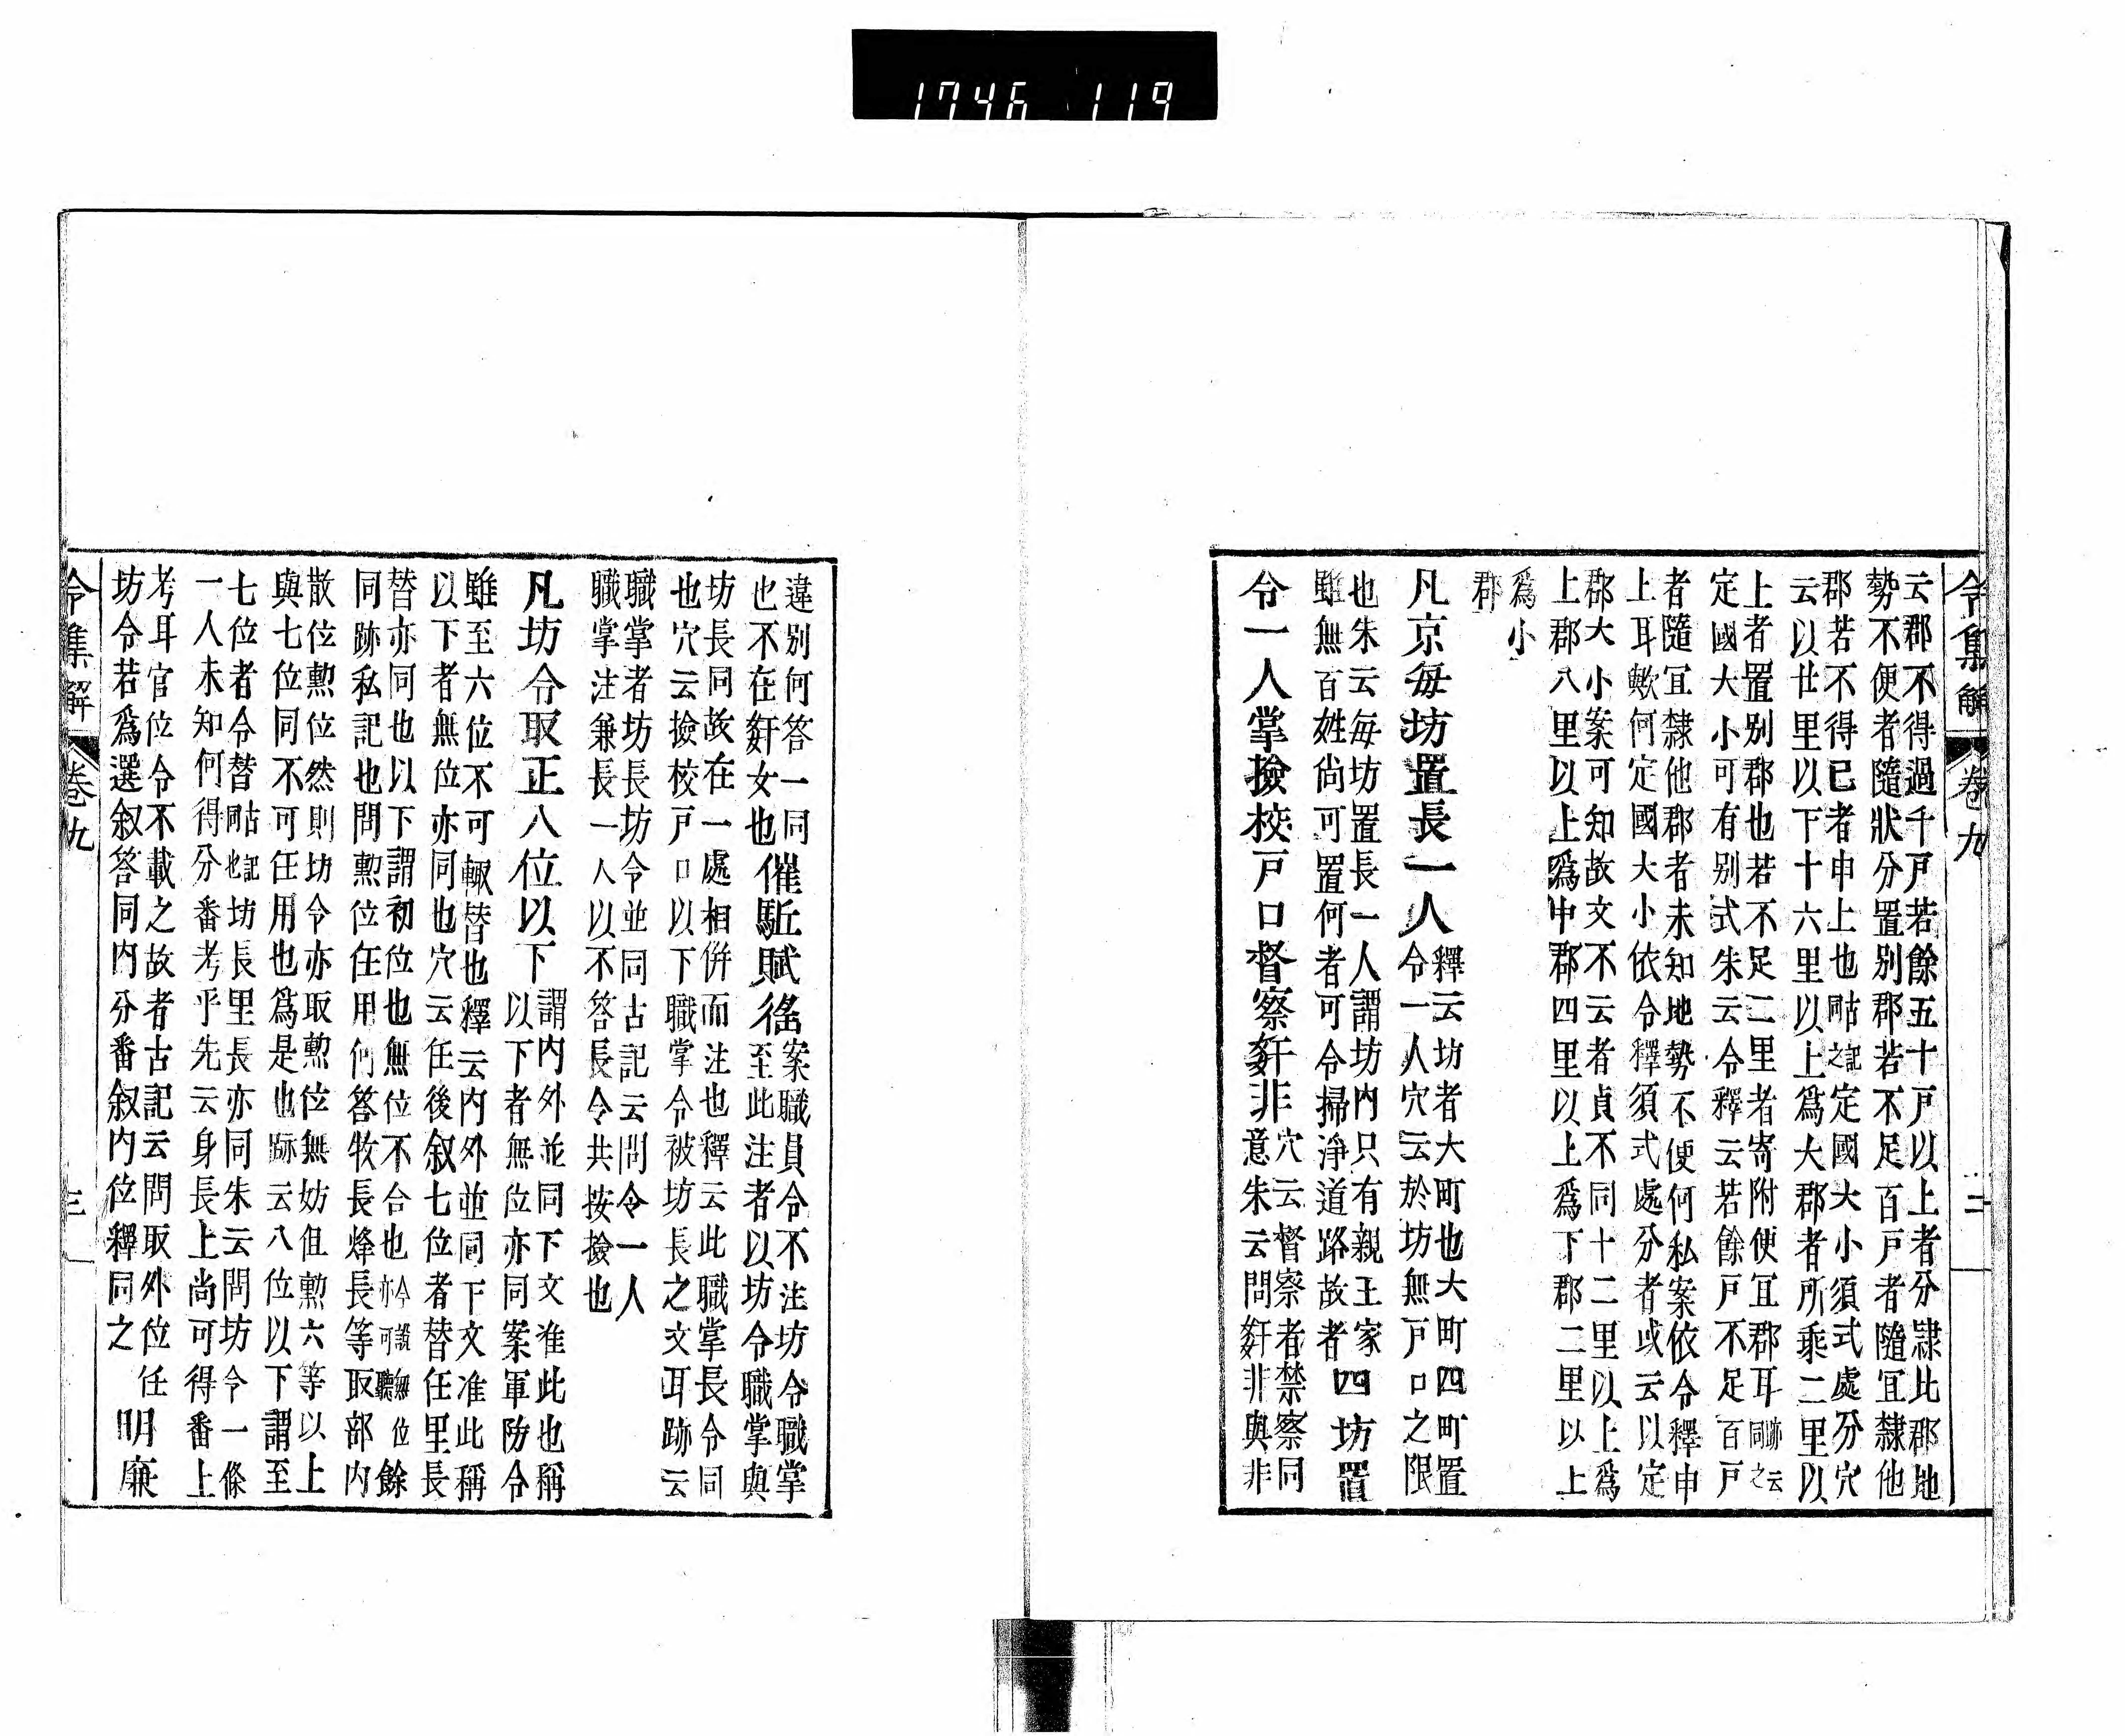 1746 119
令集解 卷九 二
云郡不得過千戸若餘五十戸以上者分隷比郡地
勢不便者隨狀分置別郡若不足百戸者隨宜隸他
郡若不得已者申上也古記同之定國大小須式處分穴
云以廿里以下十六里以上爲大郡者所乘二里以
上者置別郡也若不足二里者寄附便宜郡耳跡云同之
定國大小可有別式朱云令釋云若餘戸不足百戸
者隨宜隸他郡者未知地勢不便何私案依令釋申
上耳歟何定國大小依令釋須式處分者或云以定
郡大小案可知故文不云者貞不同十二里以上爲
上郡八里以上爲中郡四里以上爲下郡二里以上
爲小
郡
凡京毎坊置長一人釋云坊者大町也大町四町置
令一人穴云於坊無戸口之限
也朱云毎坊置長一人謂坊内只有親王家
雖無百姓尚可置何者可令掃淨道路故者四坊置
令一人掌撿校戸口督察奸非穴云督察者禁察同
意朱云問姧非與非
違別何答一同
也不在姧女也催駈賦徭案職員令不注坊令職掌
至此注者以坊令職掌與
坊長同故在一處相併而注也釋云此職掌長令同
也穴云撿校戸口以下職掌令被坊長之文耳跡云
職掌者坊長坊令並同古記云問令一人
職掌注兼長一人以不答長令共按撿也
凡坊令取正八位以下謂内外並同下文准此也稱
以下者無位亦同案軍防令
雖至六位不可輙替也釋云内外並同下文准此稱
以下者無位亦同也穴云任後叙七位者替任里長
替亦同也以下謂初位也無位不合也今議無位亦可聽餘
同跡私記也問勲位任用何答牧長烽長等取部内
散位勲位然則坊令亦取勲位無妨但勲六等以上
與七位同不可任用也爲是也跡云八位以下謂至
七位者令替古記同也坊長里長亦同朱云問坊令一條
一人未知何得分番考乎先云身長上尚可得番上
考耳官位令不載之故者古記云問取外位任
坊令若爲選叙答同内分番叙内位釋同之明廉
令集解 卷九 三